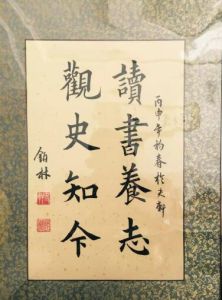 丙申年初春於天津
讀書養志
觀史知今
鉑林